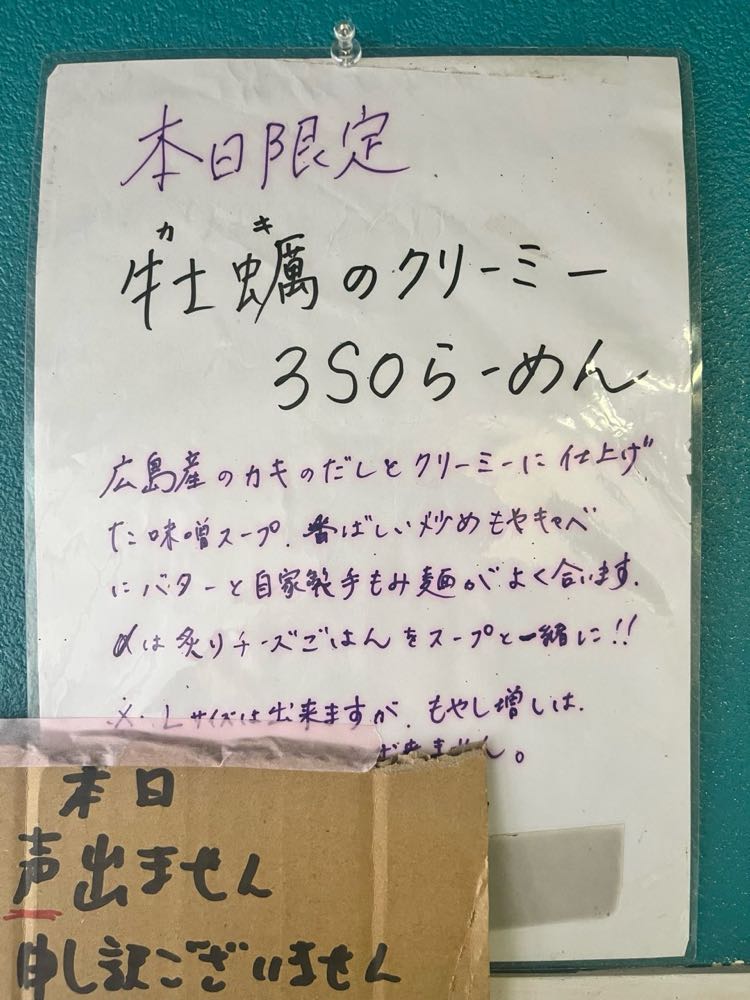 本日限定
カキ
牡蠣のクリーミー
3SOらーめん
広島産のカキのだしとクリーミーに仕上げ
た味噌スープ、香ばしい炒めもやキャベ
にバターと自家製手もみ麺がよく合います。
〆は炙りチーズごはんをスープと一緒に!!
※Lサイズは出来ますが、もやし増しは、
出来ません。
本日
声出ません
申し訳ございません